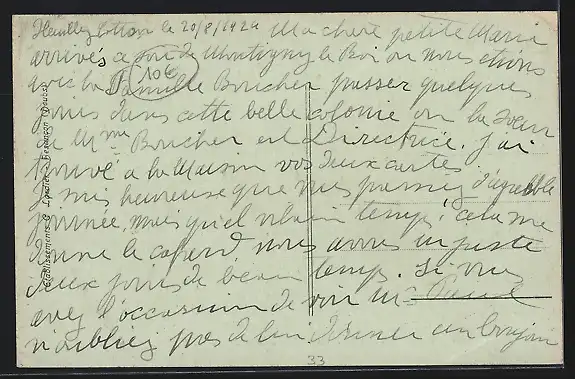 Neuilly Cotton le 20/8/1929 Ma chère petite Marie
arrivés ce soir de Montigny le Roi ou nous étions
avec la famille Boucher passer quelques
106
jours dans cette belle colonie ou la sœur
de Mme Boucher est Directrice. J'ai
trouvé a la Maison vos deux cartes.
Je suis heureuse que vous passiez d'agréable
journée, mais quel vilain temps! cela me
donne le cafard, nous avons eu juste
deux jours de beau temps. Si vous
avez l'occasion de voir Me
n'oubliez pas de lui donner un bonjour
Etablissements C. Lardier - Besançon (Doubs)
33